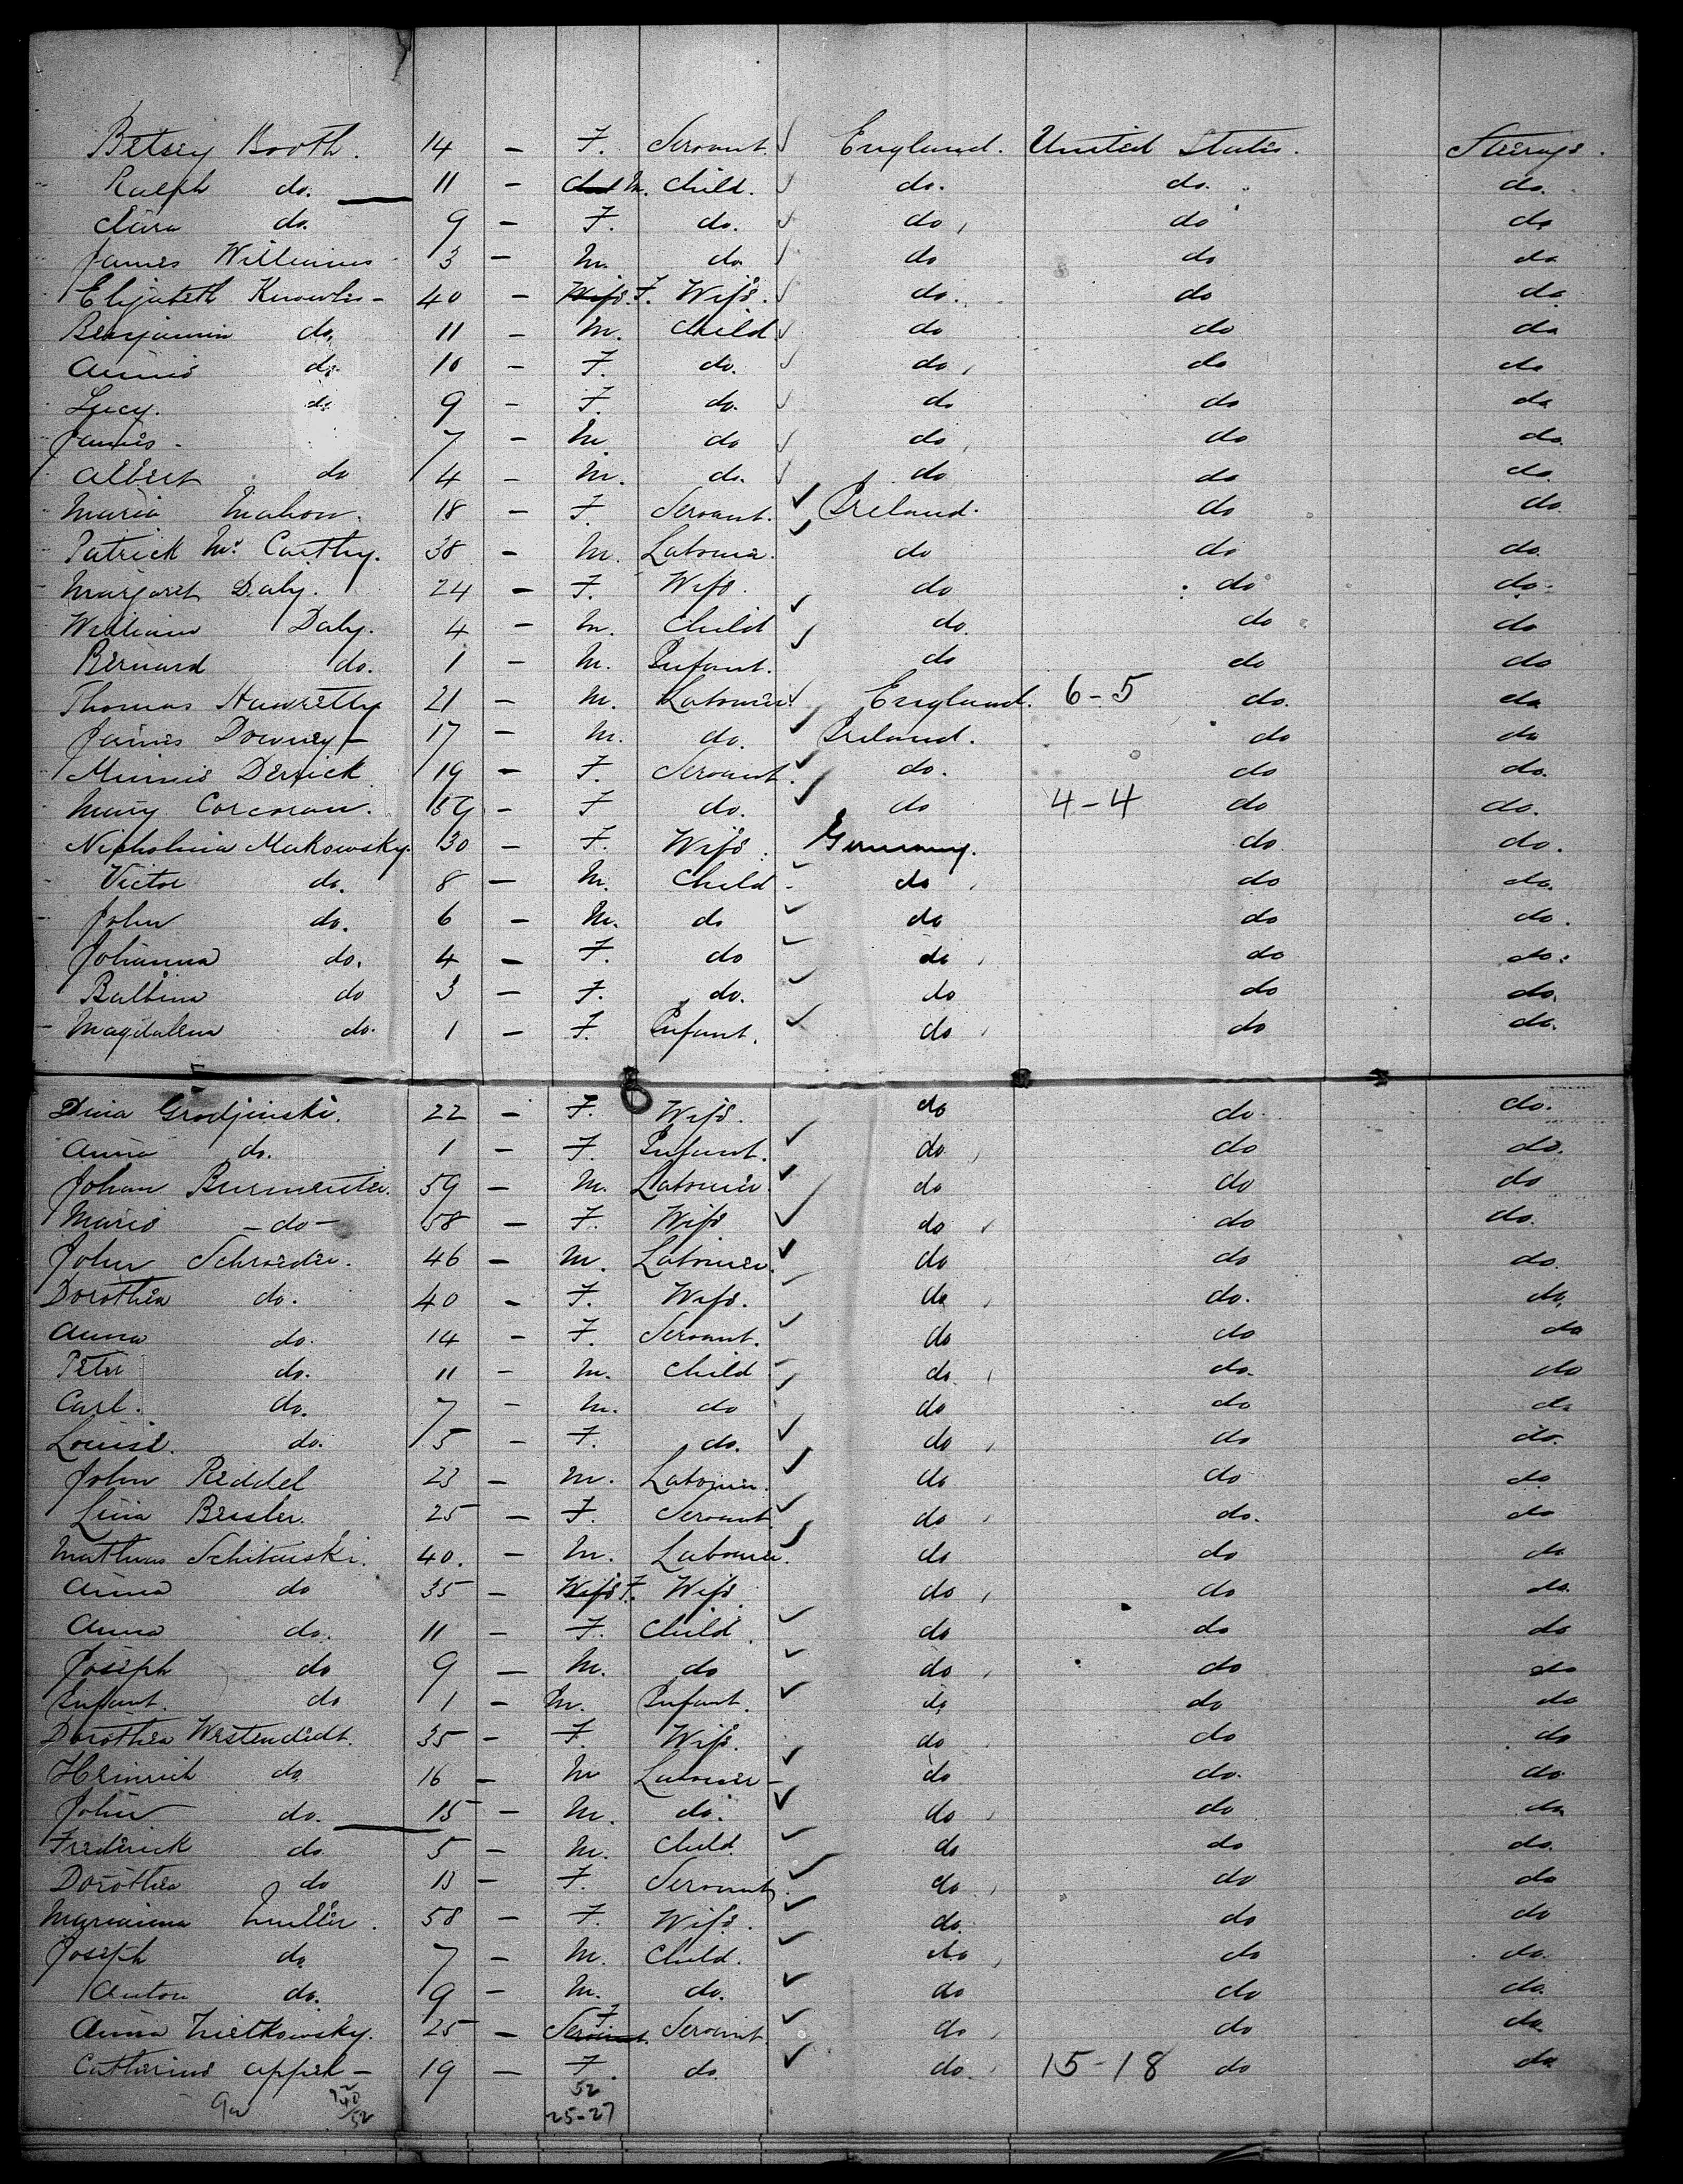 Betsey Booth. 14 - F. Servant. England. United States. Steerage.
Ralph do. 11 - M. Child. do. do. do.
Clara do. 9 - F. do. do, do do
James Williams 3 - M. do do do do
Elizabeth Knowles - 40 - Wife. F. Wife. do. do do
Benjamin do, 11 - M. Child do do do
Annie do. 10 - F. do. do, do do
Lucy. do 9 - F. do. do do do
James - 7 - M do do, do do.
Albert do 4 - M. do. do do do.
Maria Mahon. 18 - F. Servant. Ireland. do do
Patrick Mc Carthy. 38 - M. Labourer. do do do.
Margaret Daly. 24 - F. Wife. do do do.
William Daly. 4 - M. Child do. do do
Bernard do. 1 - M. Infant. do do do
Thomas 21 - M. Labourer England. 6-5 do. do
James Downey - 17 - M. do. Ireland. do do
Minnie Derrick 19 - F. Servant. do. do do.
Mary Corcoran. 59 - F do. do 4-4 do do.
Makowsky. 30 - F. Wife. Germany. do do.
Victor do. 8 - M. Child do, do do.
John do. 6 - M. do do do do.
Johanna do. 4 - F. do do, do do.
Balbina do 3 - F. do. do do do.
Magdalena do. 1 - F. Infant. do, do do.
Dina Grodjinski. 22 - F. Wife. do do. do.
Anna do. 1 - F. Infant. do, do do.
Johan Burmeister. 59 - M. Labourer. do do do
Marie - do - 58 - F. Wife do, do do.
John Schroeder. 46 - M. Labourer. do do do.
Dorothea do. 40 - F. Wife. do, do. do,
Anna do. 14 - F. Servant. do do do
Peter do. 11 - M. Child do, do. do
Carl. do. 7 - M. do do do do
Louise. do. 5 - F. do. do, do do.
John Reddel 23 - M. Labourer. do do do
Lina Bessler. 25 - F. Servant. do, do. do
Mathias Schitauski. 40. - M. Labourer. do do do
Anna do 35 - Wife F. Wife. do, do do
Anna do. 11 - F. Child. do do do
Joseph do 9 - M. do do, do do
Infant. do 1 - M. Infant. do do do
Dorothea Westendedt. 35 - F. Wife. do do do
Heinrich do 16 - M Labourer - do do. do
John do. 15 - M. do. do, do do
Frederick do. 5 - M. Child. do do do.
Dorothea do 13 - F. Servant. do, do do
Marianna Muller. 58 - F. Wife. do. do do
Joseph do 7 - M. Child. do, do do.
Anton do. 9 - M. do. do do do.
Anna 25 - Servant F Servant. do, do do
Catherine Appel - 19 - F. do. do. 15-18 do do
52
25-27